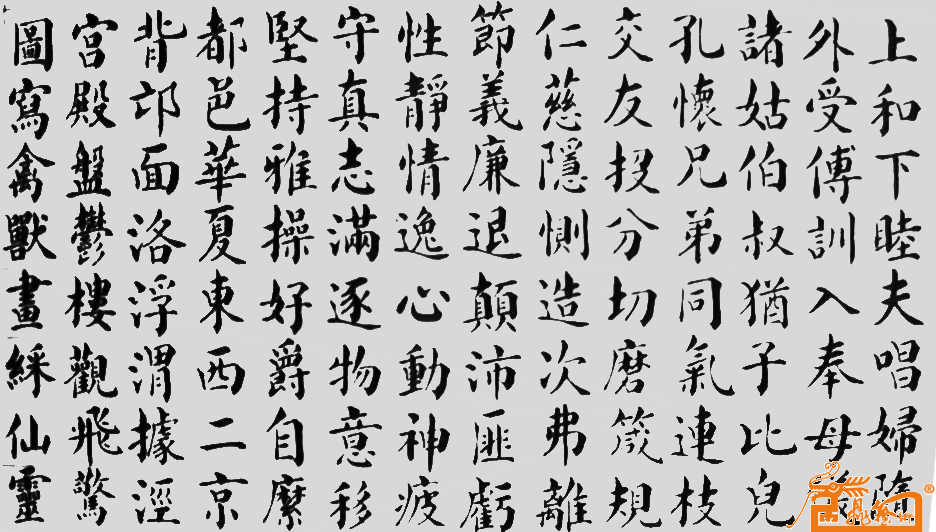 上和下睦夫唱婦隨
外受傅訓入奉母儀
諸姑伯叔猶子比兒
孔懷兄弟同氣連枝
交友投分切磨箴規
仁慈隱惻造次弗離
節義廉退顛沛匪虧
性靜情逸心動神疲
守真志滿逐物意移
堅持雅操好爵自縻
都邑華夏東西二京
背邙面洛浮渭據涇
宮殿盤鬱樓觀飛驚
圖寫禽獸畫綵仙靈